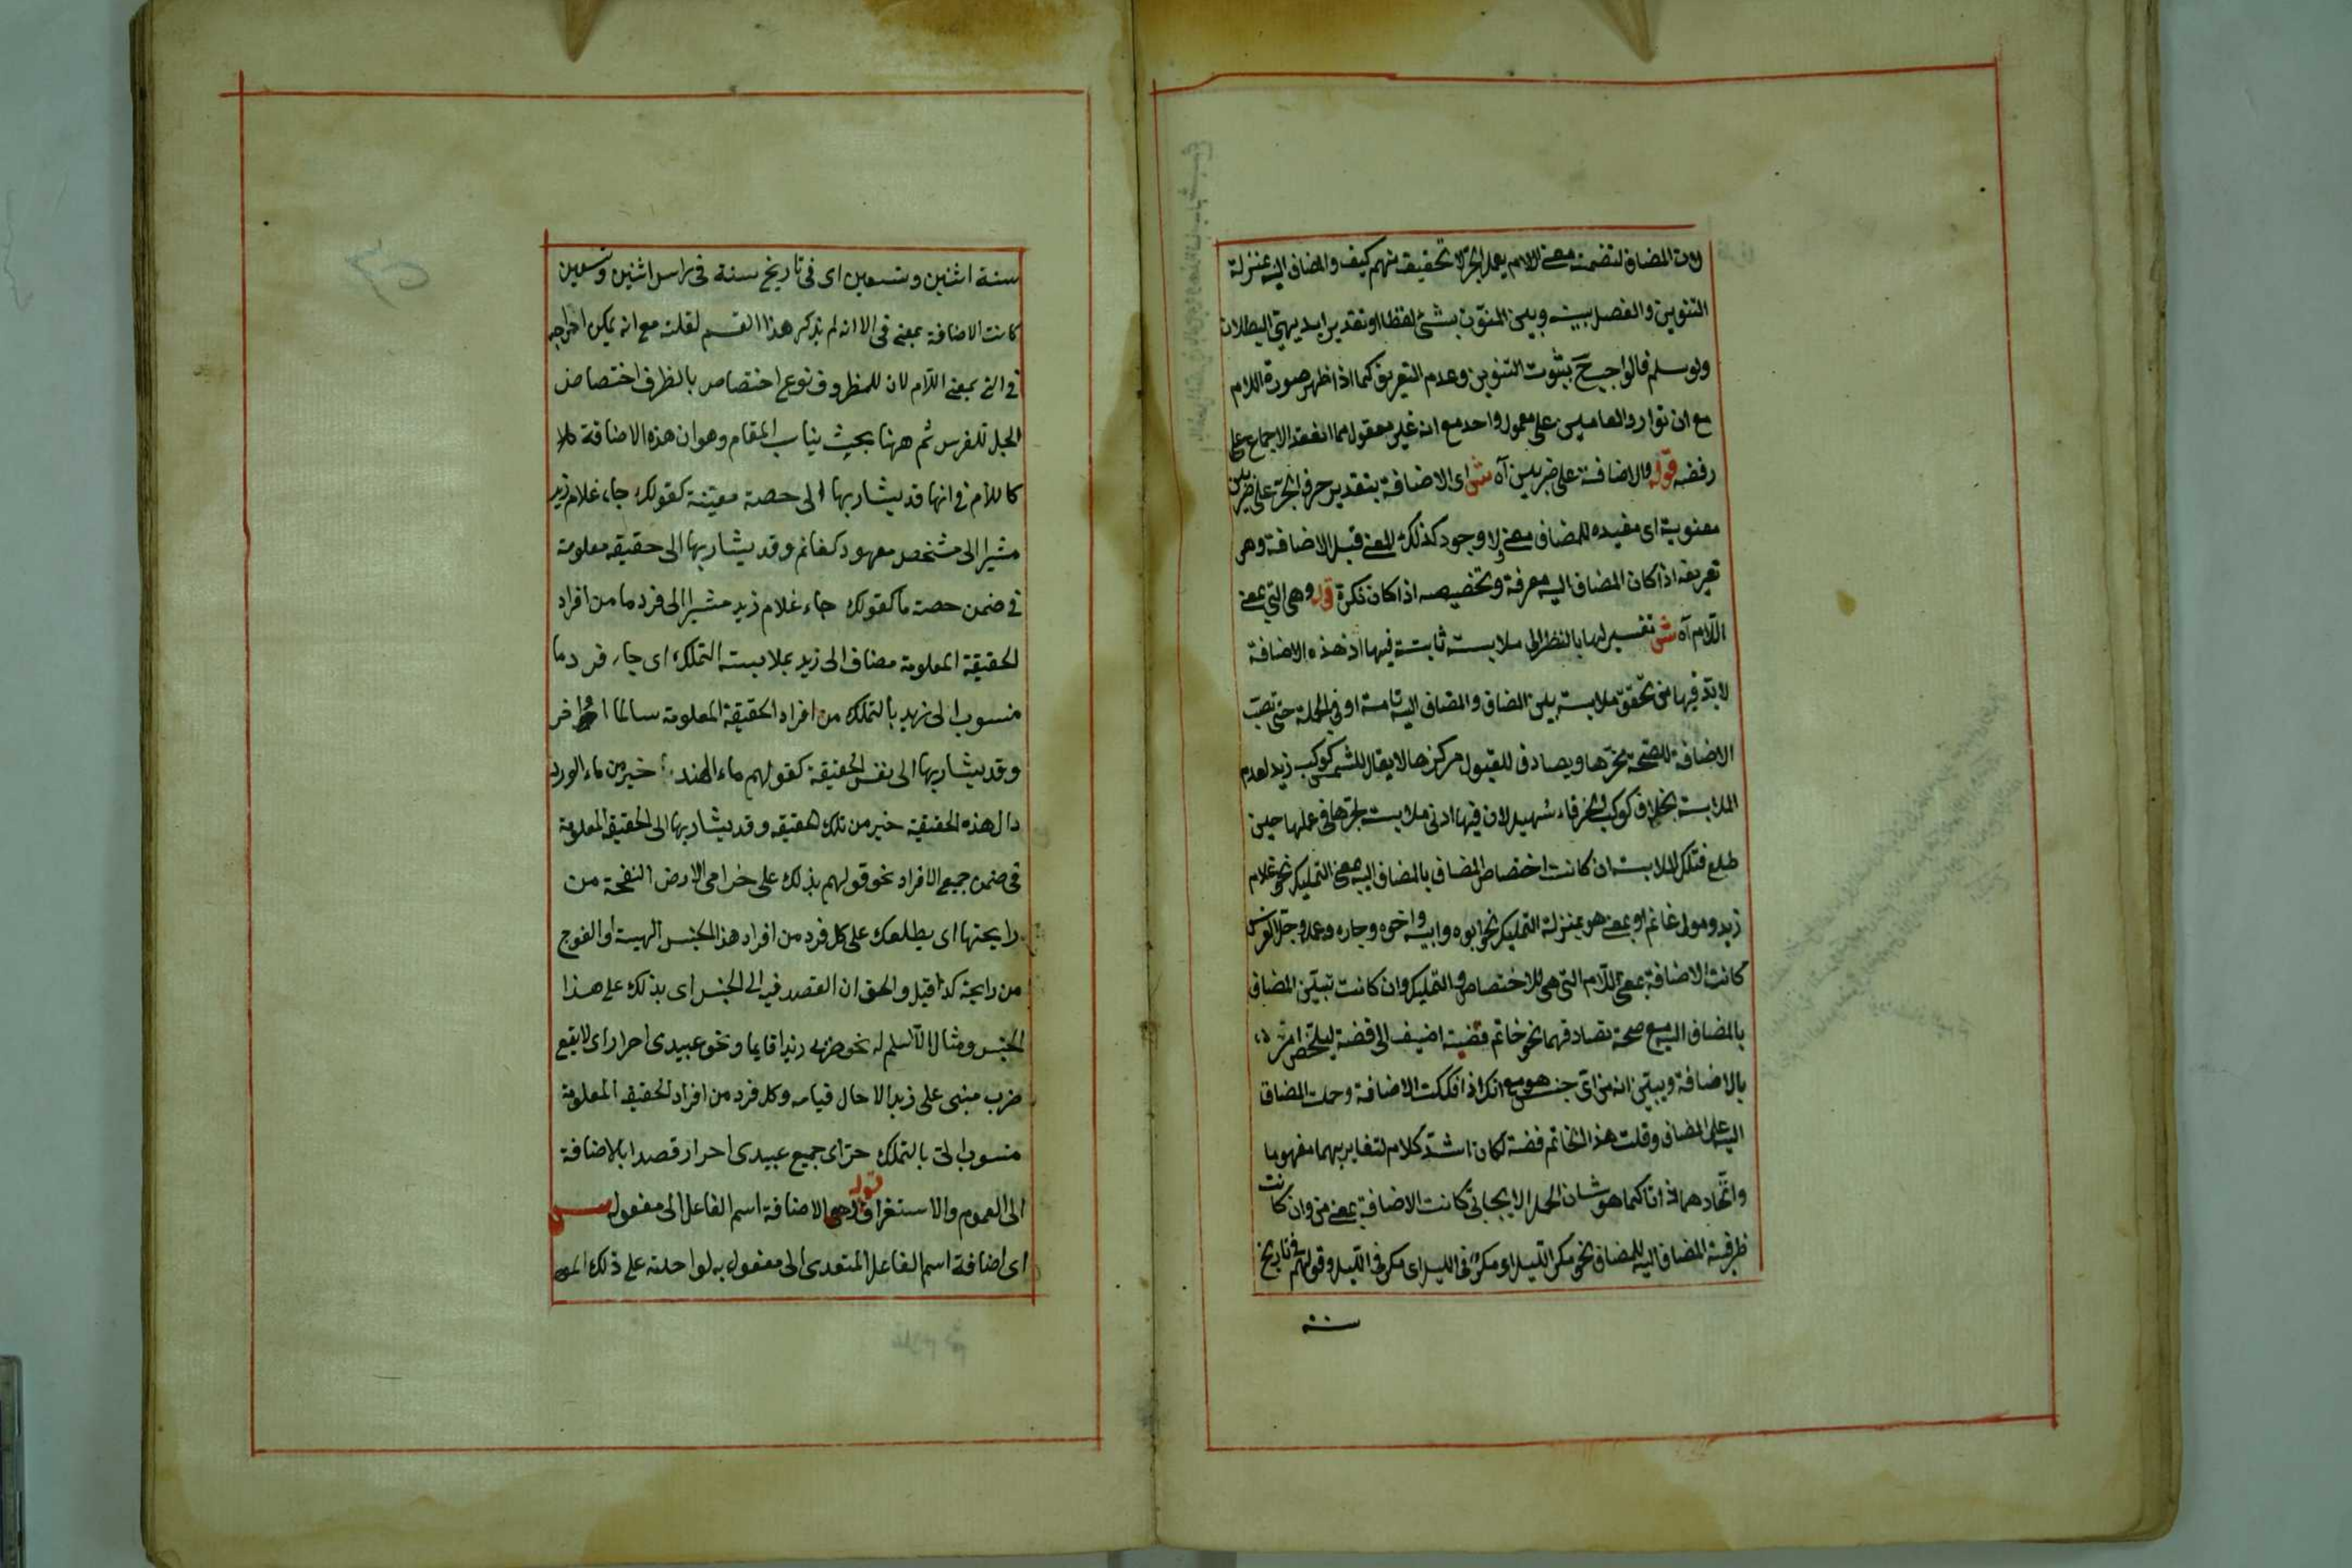 لان المضاف لتضمنه معنى اللام يعمل الجر لا تحقيقة منهم كيف والمضاف اليه بمنزلة
التنوين والفصل بينه وبين المنون بشئ لفظا او تقديرا بديهي البطلان
ولو سلم فالواجب ح بثبوت التنوين وعدم التعريف كما اذا ظهر صورة اللام
مع ان توارد العاملين على معمول واحد مع انه غير معقول مما انعقد الاجماع على
رفضه قوله والاضافة على ضربين آه ش اى الاضافة بتقدير حرف الجر على ضربين
معنوية اى مفيده للمضاف معنى لا وجود كذلك المعنى قبل الاضافة وهو
تعريفه اذا كان المضاف اليه معرفة وتخصيصه اذا كان نكرة قوله وهي التي بمعنى
اللام آه ش تفسير لها بالنظر الى ملابسة ثابتة فيها اذ هذه الاضافة
لا بد فيها من تحقق ملابسة بين المضاف والمضاف اليه تامة او في الجملة حتى تصب
الاضافة للصحة محزها ويصادف للقبول مركزها لا يقال للشمس كوكب زيد لعدم
الملابسة بخلاف كوكب الخرقاء سهيل لان فيها ادنى ملابسة لجرها في عملها حين
طلع فتلك الملابسة ان كانت اختصاص المضاف بالمضاف اليه معنى التمليك نحو غلام
زيد ومولى غانم او بمعنى هو بمنزلة التمليك نحو ابوه وابنه واخوه وجاره وعمله وجل الفرس
كانت الاضافة بمعنى اللام التي هي للاختصاص والتمليك وان كانت تبين المضاف
بالمضاف اليه مع صحة تصادقهما نحو خاتم فضة اضيف الى فضة ليتلخص امره
بالاضافة ويبين انه من اى جنس هو مع انك اذا فككت الاضافة وحملت المضاف
اليه على المضاف وقلت هذا الخاتم فضة لكان اشد كلام لتغايريهما مفهوما
واتحادهما ذاتا كما هو شان الحمل الايجابى كانت الاضافة بمعنى من وان كانت
ظرفية المضاف اليه للمضاف نحو مكر الليل او مكر في الليل اى مكر في الليل وقولهم في تاريخ
سنة
سنة اثنين وتسعين اى في تاريخ سنة في راس اثنين وتسعين
كانت الاضافة بمعنى في الا انه لم يذكر هذا القسم لقلته مع انه يمكن اخراجه
في التي بمعنى اللام لان للمظروف نوع اختصاص بالظرف اختصاص
الجل للفرس ثم ههنا بحث يناسب المقام وهو ان هذه الاضافة
كاللام في انها قد يشار بها الى حصة معينة كقولك جاء غلام زيد
مشيرا الى مشخص معهود كغانم وقد يشار بها الى حقيقة معلومة
في ضمن حصة ما كقولك جاء غلام زيد مشيرا الى فرد ما من افراد
الحقيقة المعلومة مضاف الى زيد بملابسة التملك اى جاء فرد ما
منسوب الى زيد بالتملك من افراد الحقيقة المعلومة سالما او اخر
وقد يشار بها الى نفس الحقيقة كقولهم ماء الهند با خير من ماء الورد
دال هذه الحقيقة خير من تلك الحقيقة وقد يشار بها الى الحقيقة المعلومة
في ضمن جميع الافراد نحو قولهم يذلك على خزامى الارض النفحة من
رايحتها اى يطلعك على كل فرد من افراد هذا الجنس الهيبة او الفوج
من رايحة كذا قيل والحق ان القصد فيه الى الجنس اى يذلك على هذا
الجنس ومثال السلم له نحو ضربى زيدا قايما ونحو عبيدى احرار اى لا يقع
ضرب مبنى على زيد الا حال قيامه وكل فرد من افراد الحقيقة المعلومة
منسوب الى بالتملك حر اى جميع عبيدى احرار قصدا بالاضافة
الى العموم والاستغراق قوله وهي الاضافة اسم الفاعل الى مفعوله ش
اى اضافة اسم الفاعل المتعدى الى مفعول به لواحدته على ذلك